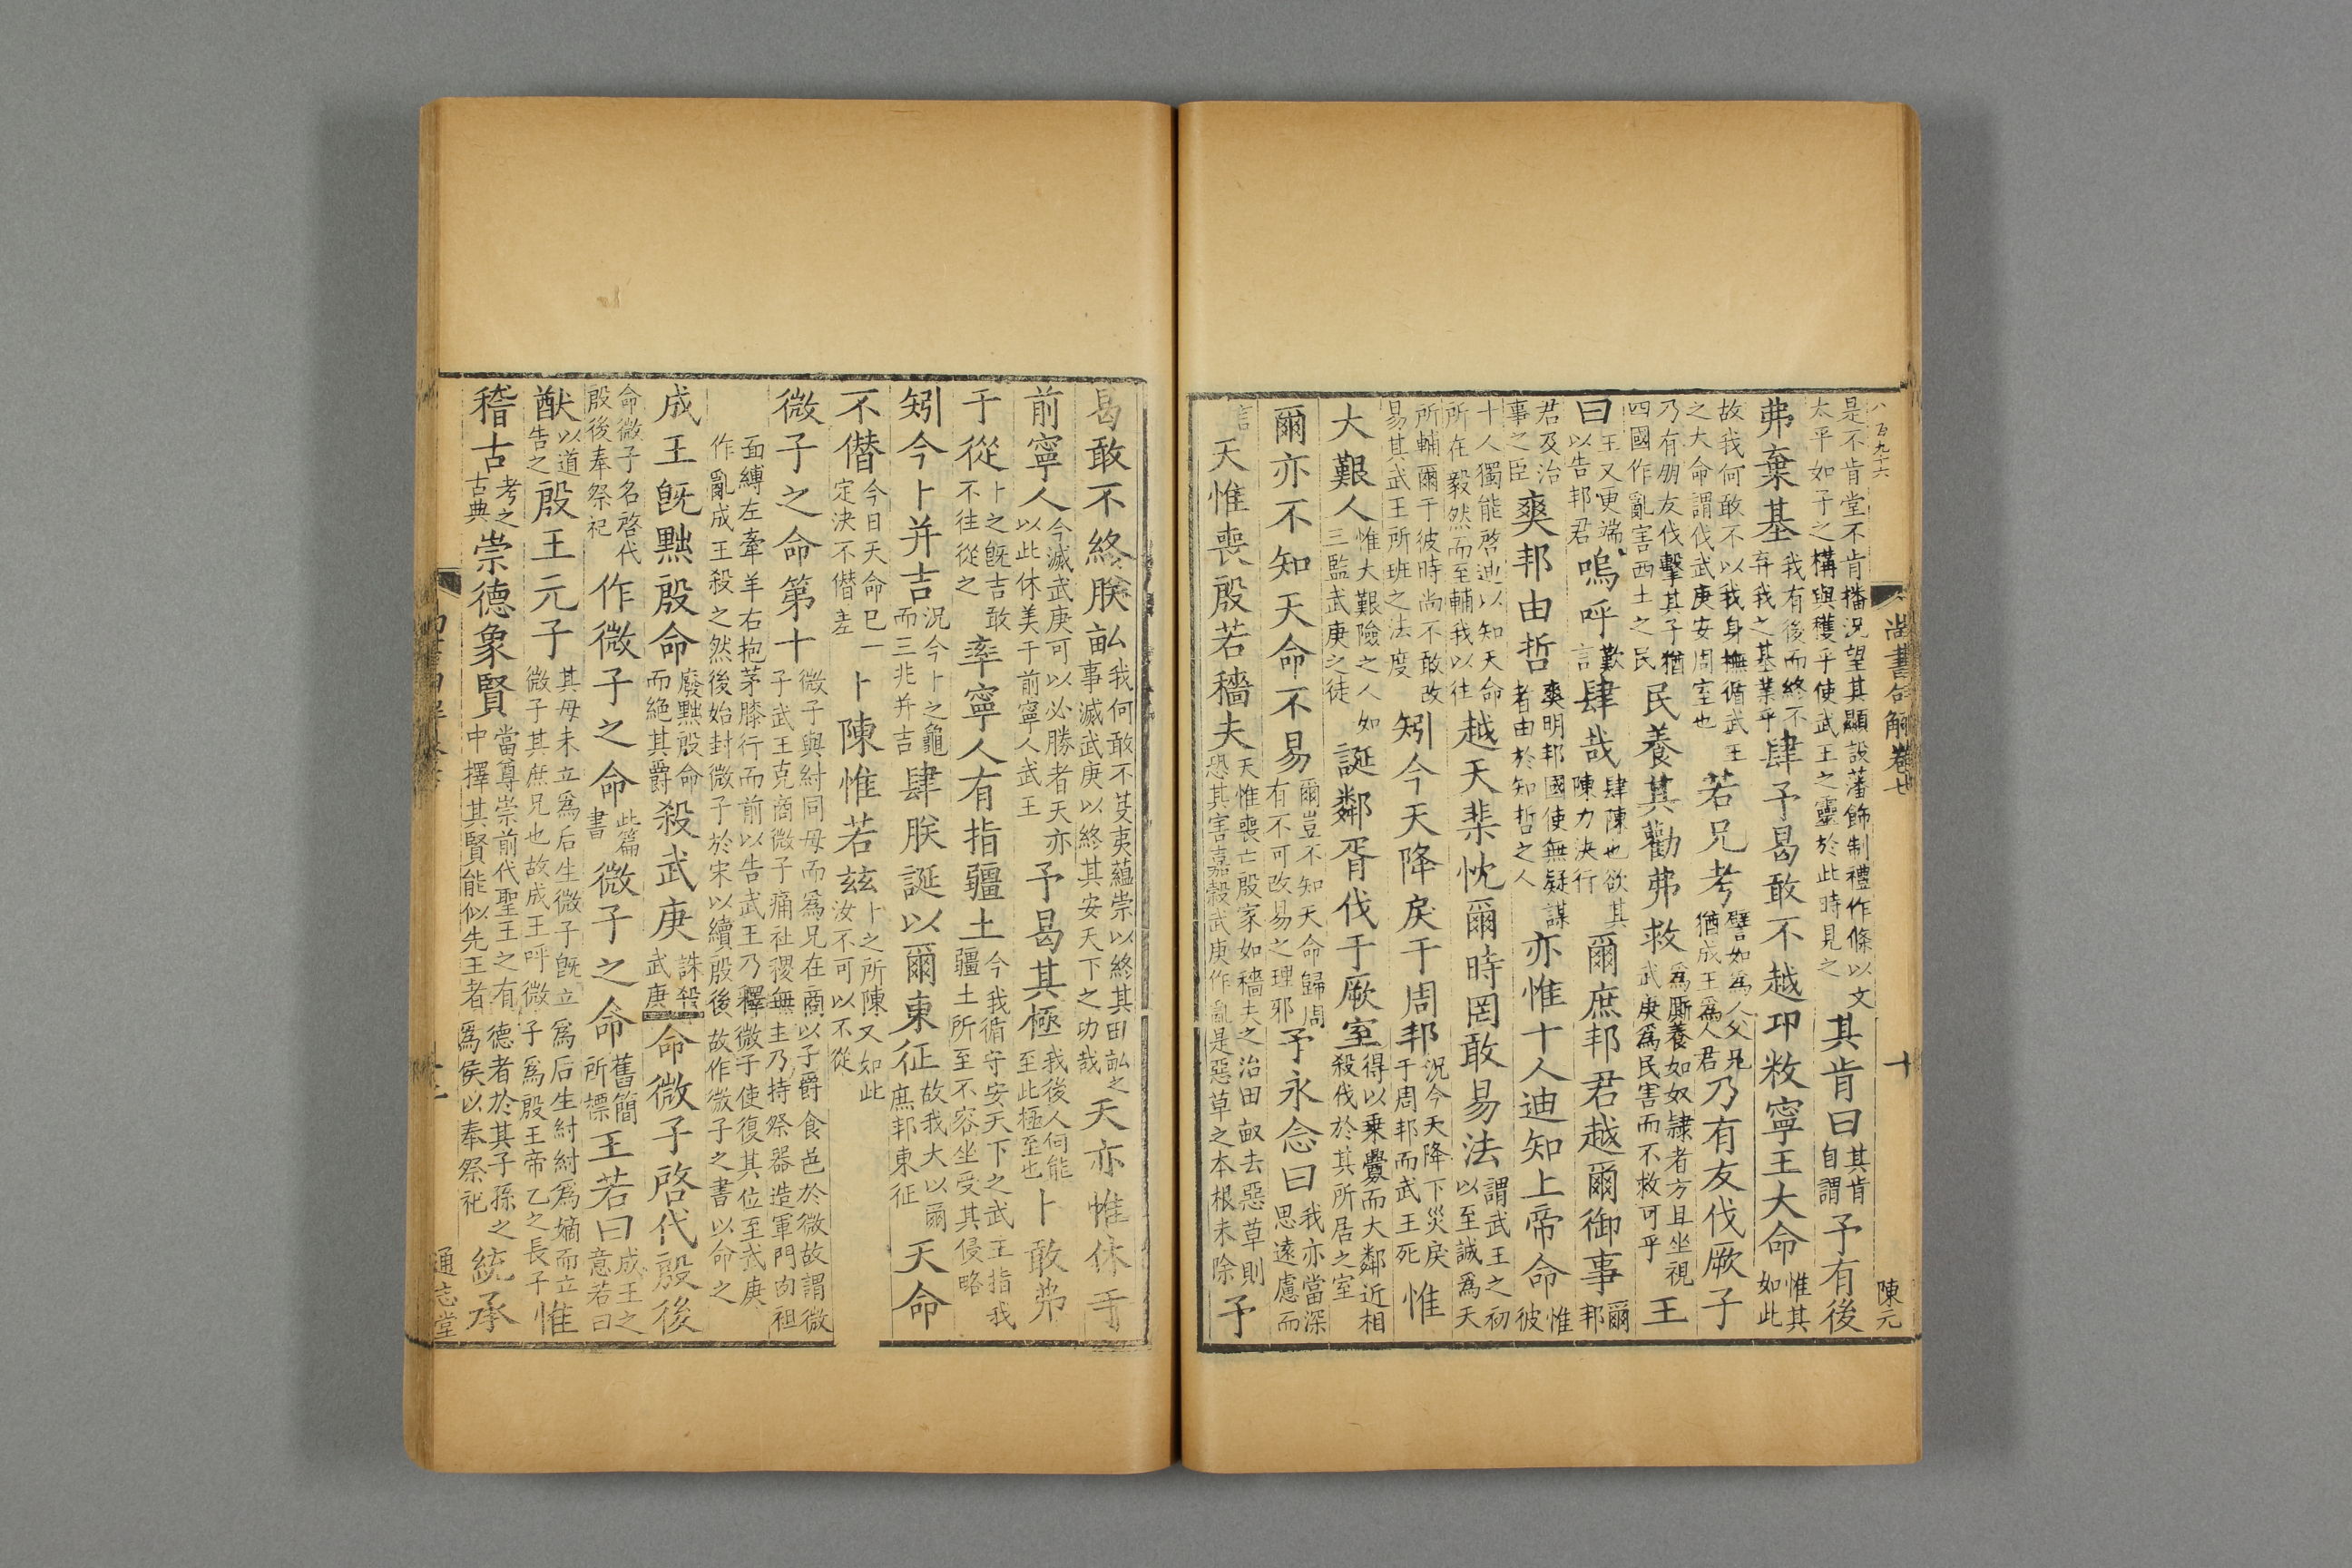 八百九十六 尚書句解卷七 十 陳元
是不肯堂不肯播況望其顯設藩飾制禮作條以文太平如子之構與穫乎使武王之靈於此時見之其肯曰其肯自謂予有後
弗棄基我有後而終不弃我之基業乎肆予曷敢不越卬敉寧王大命惟其如此
故我何敢不以我身撫循武王之大命謂伐武庚安周室也若兄考譬如為人父兄猶成王爲人君乃有友伐厥子
乃有朋友伐擊其子猶四國作亂害西土之民民養其勸弗救為厮養如奴隷者方且坐視武庚爲民害而不救可乎王
曰王又更端以告邦君嗚呼歎言肆哉肆陳也欲其陳力決行爾庶邦君越爾御事爾邦
君及治事之臣爽邦由哲爽明邦國使無疑謀者由於知哲之人亦惟十人迪知上帝命惟彼
十人獨能啓迪以知天命所在毅然而至輔我以往越天棐忱爾時罔敢易法謂武王之初以至誠爲天
所輔爾于彼時尚不敢改易其武王所班之法度矧今天降戾于周邦況今天降下災戾于周邦而武王死惟
大艱人惟大艱險之人如三監武庚之徒誕鄰胥伐于厥室得以乗釁而大鄰近相殺伐於其所居之室
爾亦不知天命不易爾豈不知天命歸周有不可改易之理邪予永念曰我亦當深思遠慮而
言天惟喪殷若穡夫天惟喪亡殷家如穡夫之治田畝去惡草則恐其害嘉穀武庚作亂是惡草之本根未除予
曷敢不終朕畝我何敢不芟夷蘊崇以終其田畝之事滅武庚以終其安天下之功哉天亦惟休于
前寧人今滅武庚可以必勝者天亦以此休美于前寧人武王予曷其極我後人何能至此極至也卜敢弗
于從卜之旣吉敢不往從之率寧人有指疆土今我循守安天下之武王指我疆土所至不容坐受其侵略
矧今卜并吉況今卜之龜而三兆并吉肆朕誕以爾東征故我大以爾庶邦東征天命
不僭今日天命已定決不僭差卜陳惟若兹卜之所陳又如此汝不可以不從
微子之命第十微子與紂同母而爲兄在商以子爵食邑於微故謂微子武王克商微子痛社稷無主乃持祭器造軍門肉袒
面縛左牽羊右抱茅膝行而前以告武王乃釋微子使復其位至武庚作亂成王殺之然後始封微子於宋以續殷後故作微子之書以命之
成王旣黜殷命廢黜殷命而絕其爵殺武庚誅殺武庚命微子啓代殷後
命微子名啓代殷後奉祭祀作微子之命此篇書微子之命舊簡所標王若曰成王之意若曰
猷以道告之殷王元子其母未立爲后生微子旣立爲后生紂紂爲嫡而立微子其庶兄也故成王呼微子爲殷王帝乙之長子惟
稽古考之古典崇德象賢當尊崇前代聖王之有德者於其子孫之中擇其賢能似先王者爲侯以奉祭祀統承
通志堂